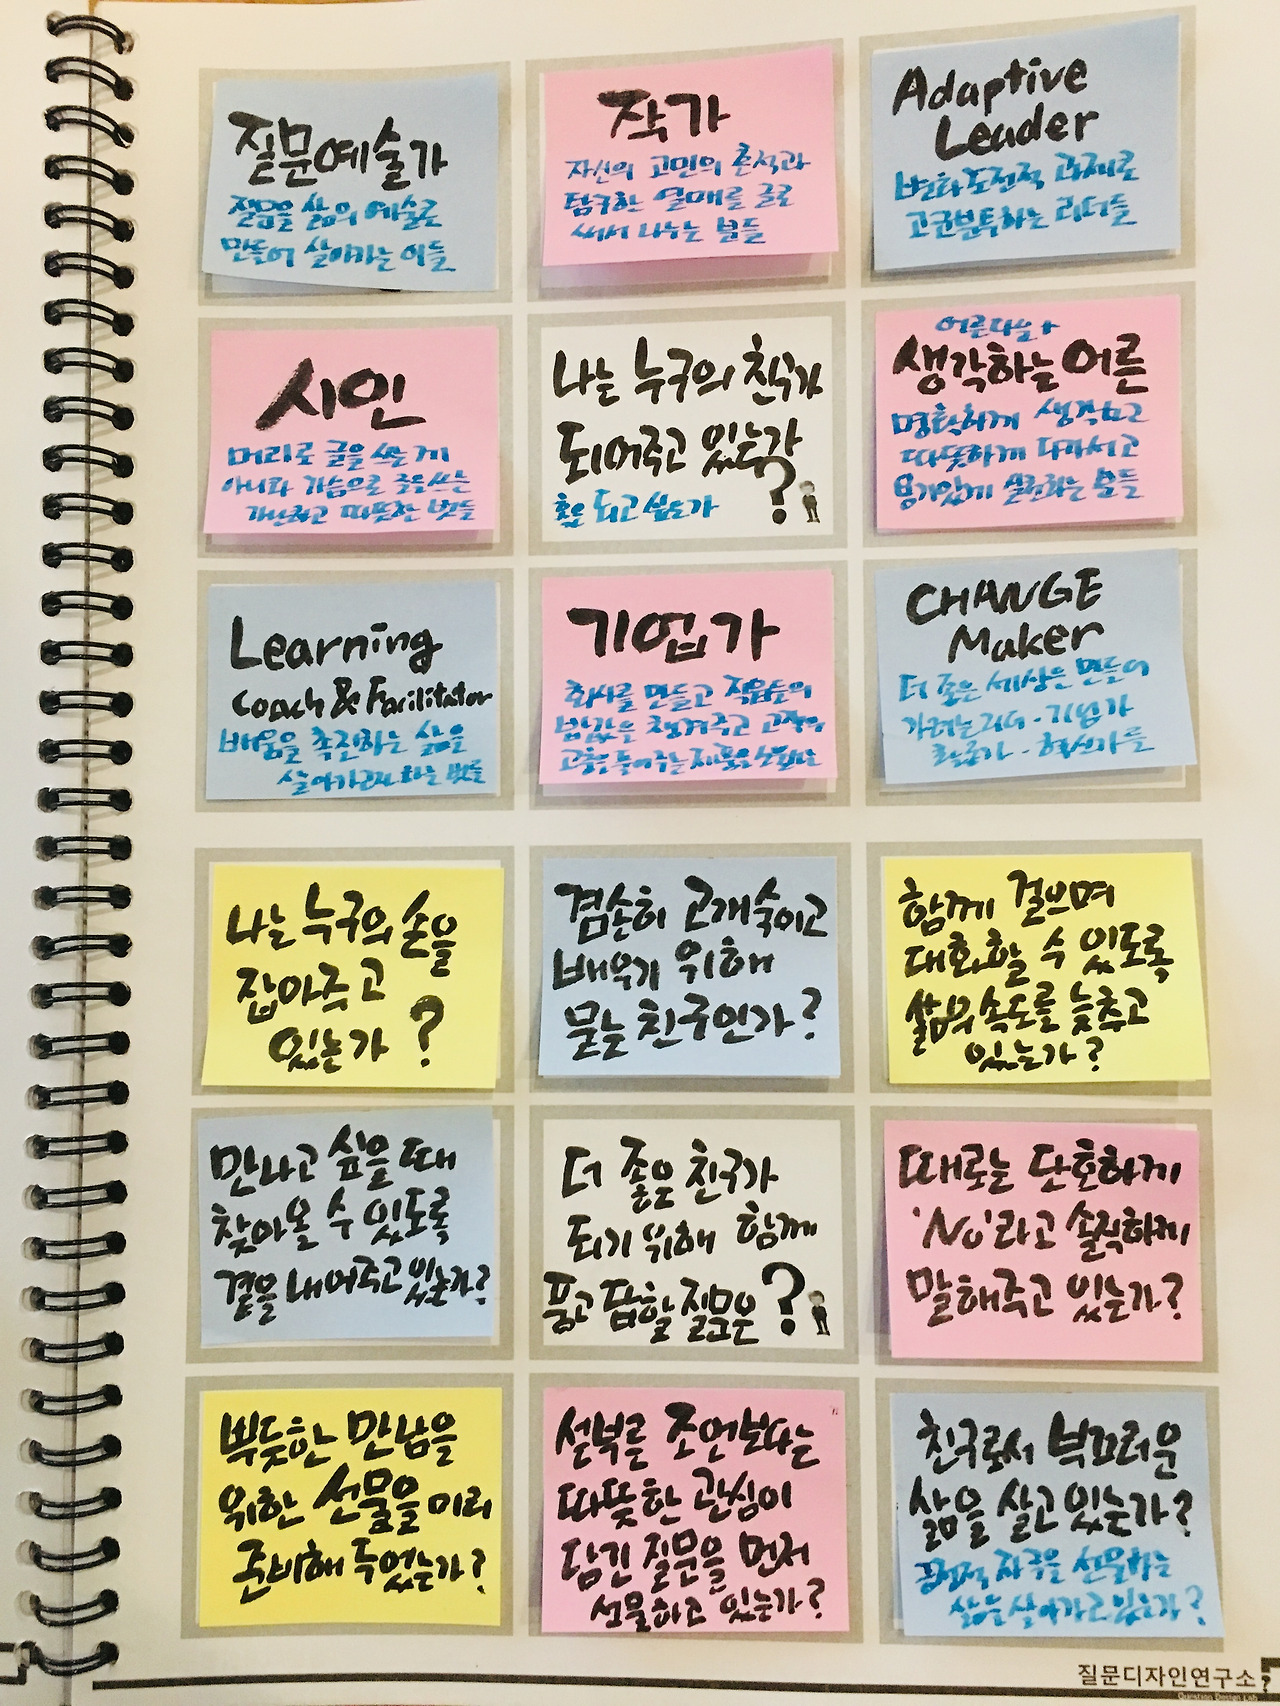 질문예술가
질문을 삶의 예술로
만들어 살아가는 이들
작가
자신의 고민의 흔적과
탐구한 열매를 글로
써서 나누는 분들
Adaptive
Leader
변화도전적 과제로
고군분투하는 리더들
시인
머리로 글을 쓰는게
아니라 가슴으로 글을 쓰는
개선하고 따뜻한 벗들
나는 누구의 친구가
되어주고 있는가
?
혹은 되고 싶은가
어른다움+
생각하는 어른
명확하게 생각하고
따뜻하게 다가서고
용기있게 실천하는 분들
Learning
Coach & Facilitator
배움을 촉진하는 삶을
살아가고자 하는 벗들
기업가
회사를 만들고 직원들의
밥값을 챙겨주고 고객의
고충을 들어주는 제품을
CHANGE
Maker
더 좋은 세상을 만들어
가려는 리더·기업가
활동가·혁신가들
나는 누구의 손을
잡아주고
있는가?
겸손히 고개숙이고
배우기 위해
묻는 친구인가?
함께 걸으며
대화할 수 있도록
삶의 속도를 늦추고
있는가?
만나고 싶을 때
찾아올 수 있도록
곁을 내어주고 있는가?
더 좋은 친구가
되기 위해 함께
품고 답할 질문은?
때로는 단호하게
'No'라고 솔직하게
말해주고 있는가?
뿌듯한 만남을
위한 선물을 미리
준비해 두었는가?
섣부른 조언보다는
따뜻한 관심이
담긴 질문을 먼저
선물하고 있는가?
친구로서 부끄러운
삶을 살고 있는가?
긍정적 자극을 선물하는
삶을 살아가고 있는가?
질문디자인연구소
Question Design Lab